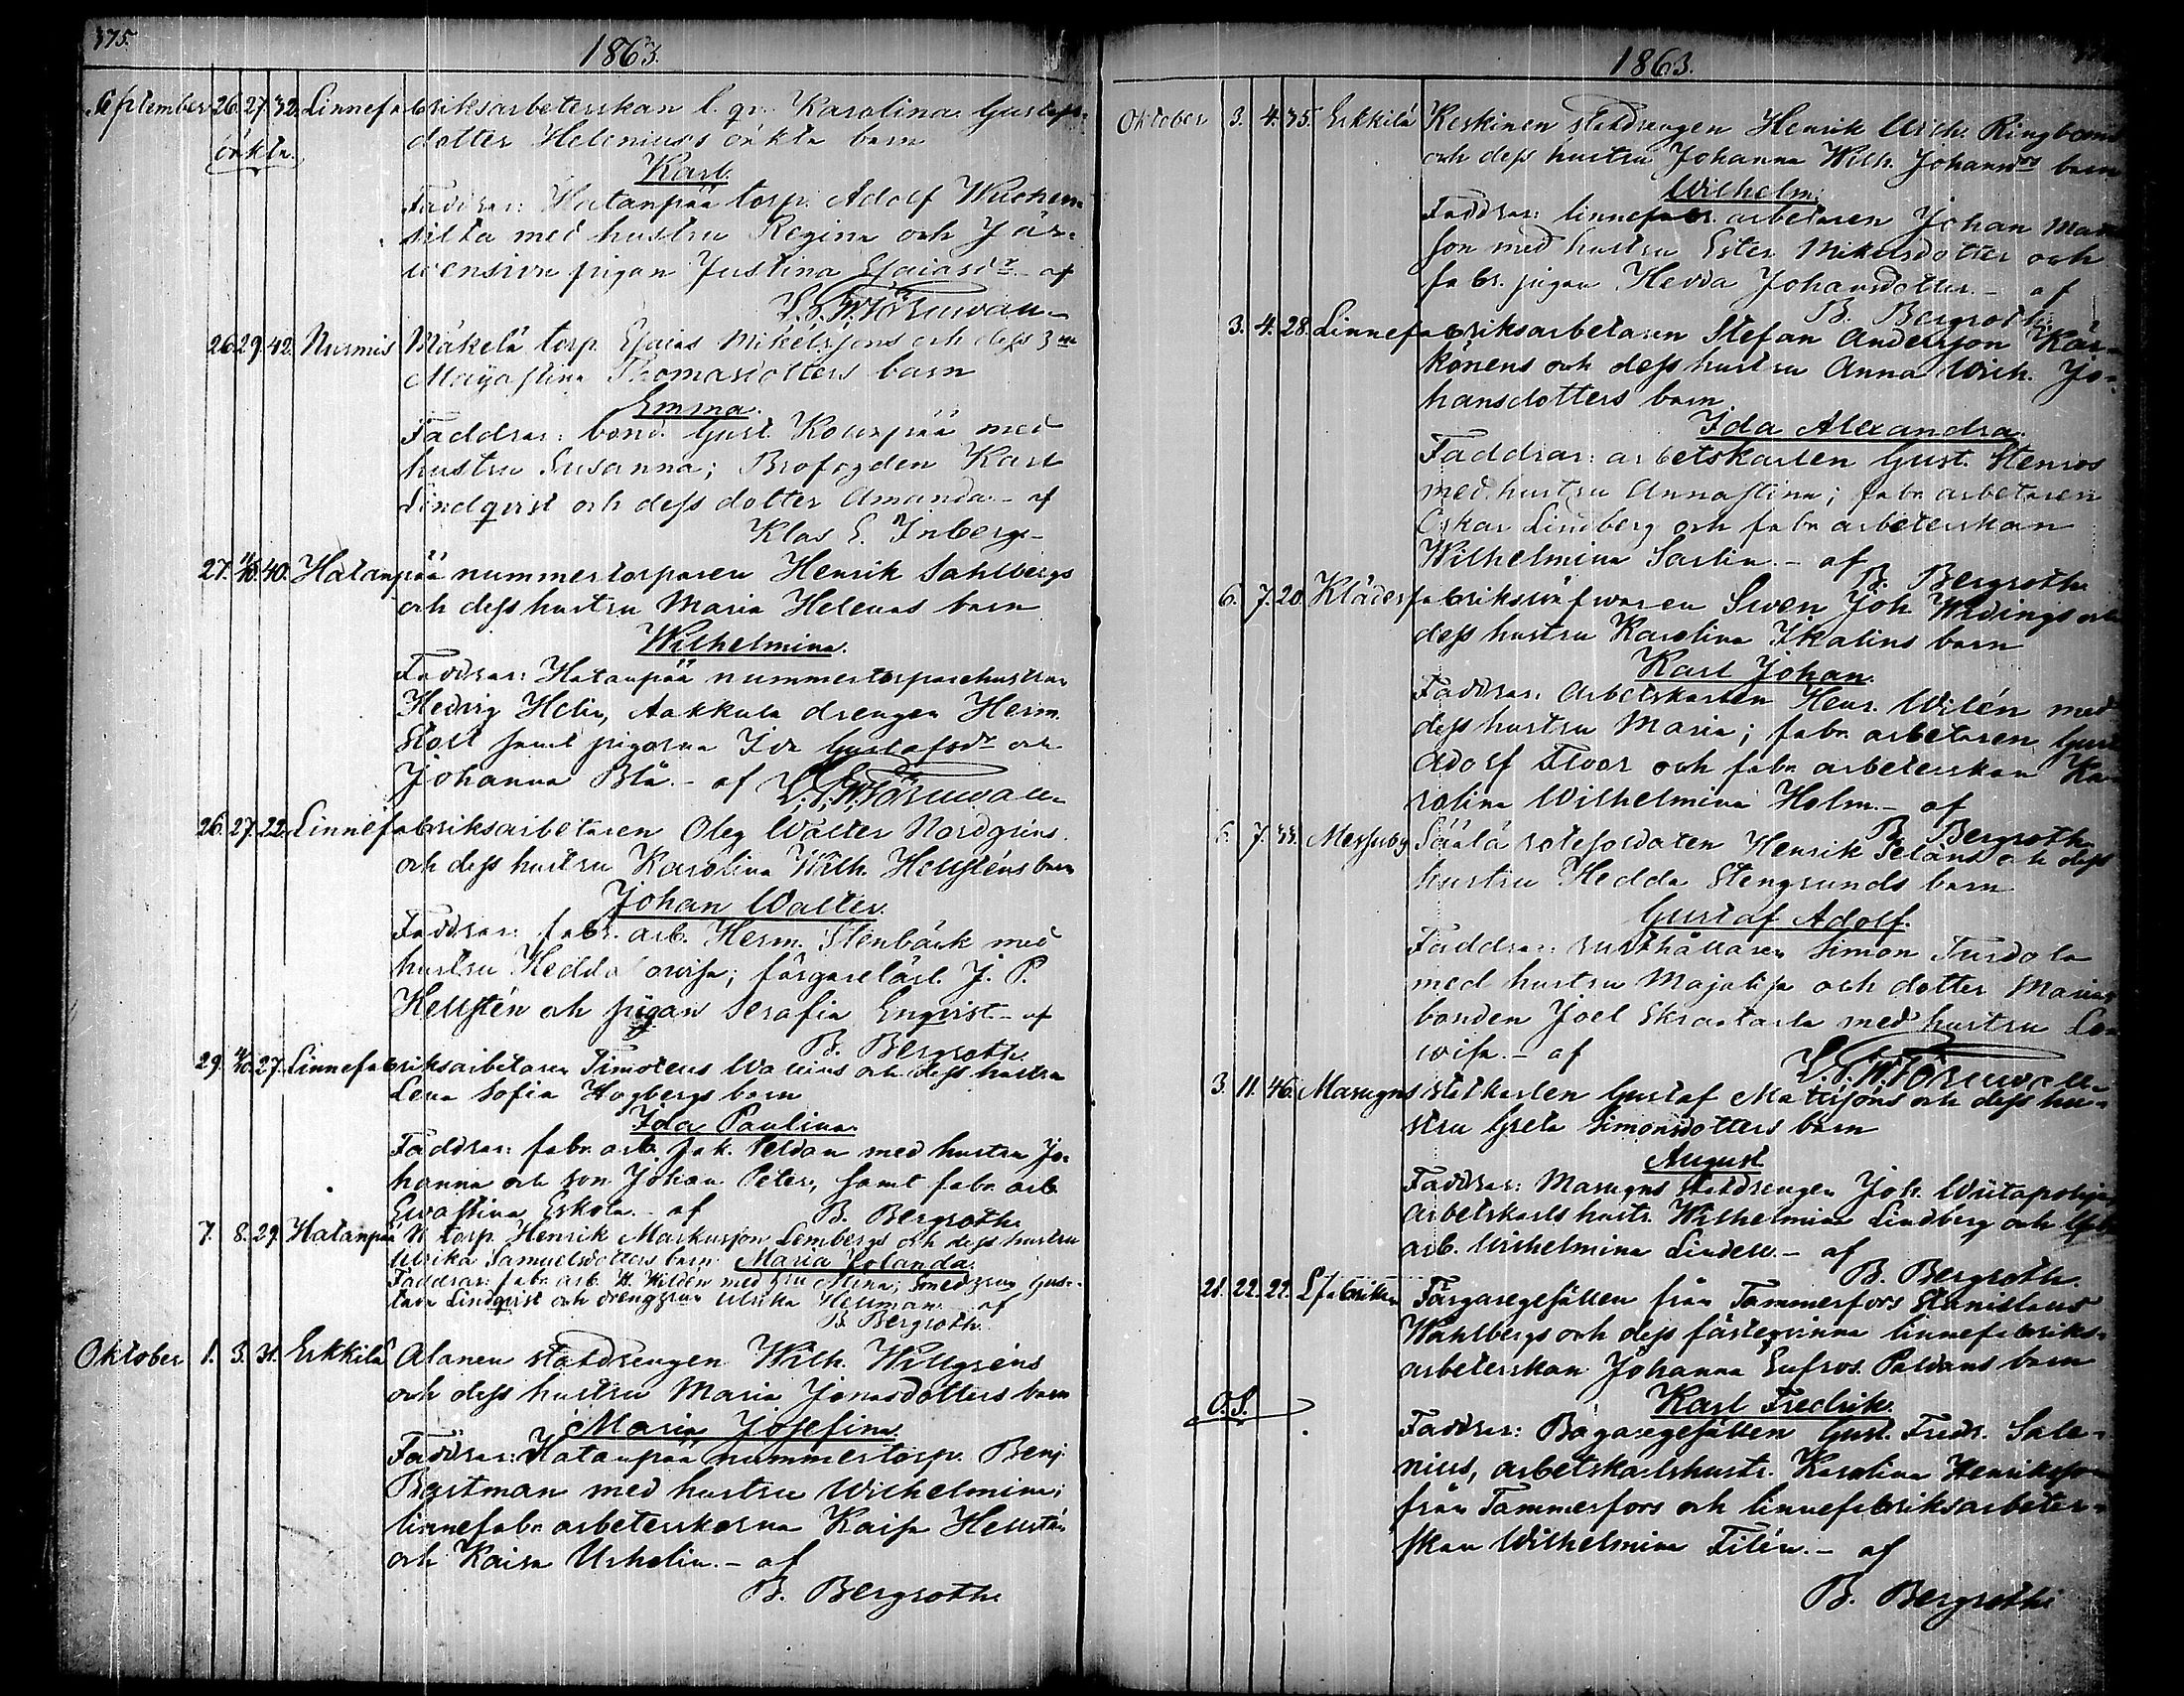 375.
1863.
September 26. 27. 32. Linnefabriksarbeterskan l. qv. Karolina Gustafs-
oäkta. dotter Helenius's oäkta barn
Karl.
Faddrar: Hatanpää torp. Adolf Wuohen-
silta med hustru Regina och Jär-
wensivu pigan Justina Esaiasdr. - af
26. 29. 42. Nurmis Mäkelä torp. Esaias Mikelssons och dess
Majastina Thomasdotters barn
Emma.
Faddrar: bond. Gust. Kourpää med
hustru Susanna; Brofogden Karl
Lindqvist och dess dotter Amanda. - af
Klas E. Inberg. -
27. 4/10. 40. Hatanpää nummertorparen Henrik Sahlbergs
och dess hustru Maria Helenas barn
Wilhelmina.
Faddrar: Hatanpää nummertorparehustrun
Hedvig Helin, Aakkula drengen Herm.
Stolt samt pigorna Ida Gustafsdr och
Johanna Blå. - af
26. 27. 22. Linnefabriksarbetaren Oleg Walter Nordgréns
och dess hustru Karolina Wilh. Hellsténs barn
Johan Walter.
Faddrar: fabr. arb. Herm. Stenbäck med
hustru Hedda Lovisa; färgarelärl. J. P.
Hellstén och pigan Serafia Enqvist. - af
B. Bergroth.
29. 4/10. 27. Linnefabriksarbetaren Timoteus Wallius och dess hustru
Lena Sofia Hogbergs barn
Ida Paulina.
Faddrar: fabr. arb. Jak. Peldan med hustru Jo-
hanna och son Johan Peter, samt fabr. arb.
Evastina Eskola. - af B. Bergroth.
7. 8. 29. Hatanpää N torp. Henrik Markusson Lembergs och dess hustru
Ulrika Samuelsdotters barn Maria Jolanda.
Faddrar: fabr. arb. H. Wildén med hru Stina; Smedhrun Gus-
tava Lindqvist och drenghrun Ulrika Hellman. af
B. Bergroth.
Oktober 1. 3. 31. Erkkilä Alanen statdrengen Wilh. Willgréns
och dess hustru Maria Jonasdotters barn
Maria Josefina.
Faddrar: Hatanpää nummertorp. Benj.
Bestman med hustru Wilhelmina;
linnefabr. arbeterskorna Kaisa Hellstén
och Kaisa Urhelin. - af
B. Bergroth.
1863.
Oktober 3. 4. 35. Erkkilä Keskinen statdrengen Henrik Wilh. Ringboms
och dess hustru Johanna Wilh. Johansdrs barn
Wilhelm.
Faddrar: linnefabr. arbetaren Johan Mat-
son med hustru Ester Mikelsdotter och
fabr. pigan Hedda Johansdotter. - af
B. Bergroth.
3. 4. 28. Linnefabriksarbetaren Stefan Andersson Kär-
könens och dess hustru Anna Wilh. Jo-
hansdotters barn
Ida Alexandra.
Faddrar: arbetskarlen Gust. Stenros
med hustru Annastina; fabr. arbetaren
Oskar Lindberg och fabr. arbeterskan
Wilhelmina Sarlin. - af
B. Bergroth.
6. 7. 20. Klädesfabriksväfvaren Sven Joh. Widings och
dess hustru Karolina Ikalins barn
Karl Johan.
Faddrar: Arbetskarlen Henr. Wilén med
dess hustru Maria; fabr. arbetaren Gust.
Adolf Floor och fabr. arbeterskan Ka-
rolina Wilhelmina Holm. - af
B. Bergroth.
6. 7. 33. Messuby Säälä rotesoldaten Henrik Peläns och dess
hustru Hedda Stengrunds barn
Gustaf Adolf.
Faddrar: rusthållaren Simon Turdola
med hustru Majalisa och dotter Maria;
bonden Joel Skraatarla med hustru Lo-
wisa. - af
3. 11. 46. Masugns statkarlen Gustaf Matssons och dess hu-
stru Greta Simonsdotters barn
August
Faddrar: Masugns statdrengen Joh. Wiitapohja,
arbetskarls hustr. Wilhelmina Lindberg och lfabr.
arb. Wilhelmina Lindell. - af
B. Bergroth.
21. 22. 22. Lfabriken Färgaregesällen från Tammerfors Stanislaus
Wahlbergs och dess fästeqvinna linnefabriks-
arbeterskan Johanna Eufros. Paldans barn
O.S. Karl Fredrik.
Faddrar: Bagaregesällen Gust. Fredr. Sale-
nius, arbetskarlshustr. Karolina Henriksson
från Tammerfors och linnefabriksarbeter-
skan Wilhelmina Filén. - af
B. Bergroth.